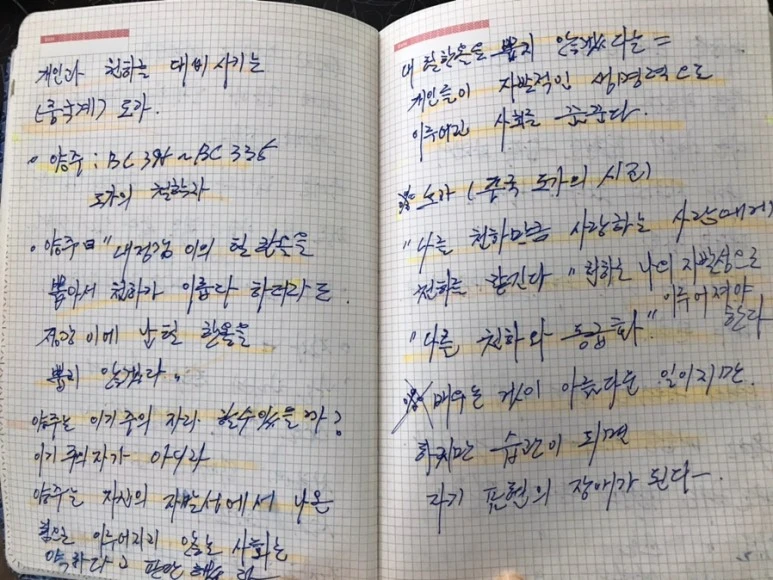 개인과 천하를 대비시키는
(중국계) 도가.
• 양주 : BC ~ BC 335
도가의 철학자
• 양주 " 내정강이의 털 한올을
뽑아서 천하가 이롭다 하더라도.
정강이에 난 털 한올을
뽑지 않겠다"
양주는 이기주의 자라 할수있을까?
이기주의자가 아니라
양주는 자신의 자발성에서 나온
힘으로 이루어지지 않는 사회는
약하다고 판단
내 털 한올을 뽑지 않겠다는 =
개인들이 자발적인 생명력으로
이루어진 사회를 꿈꾼다.
노자 (중국 도가의 시조)
"나를 천하만큼 사랑하는 사람에게
천하를 맡긴다" 천하는 나의 자발성으로
이루어져야
한다
"나를 천하와 동급화"
배우는 것이 아름다운 일이지만.
하지만 습관이 되면
자기 표현의 장애가 된다-